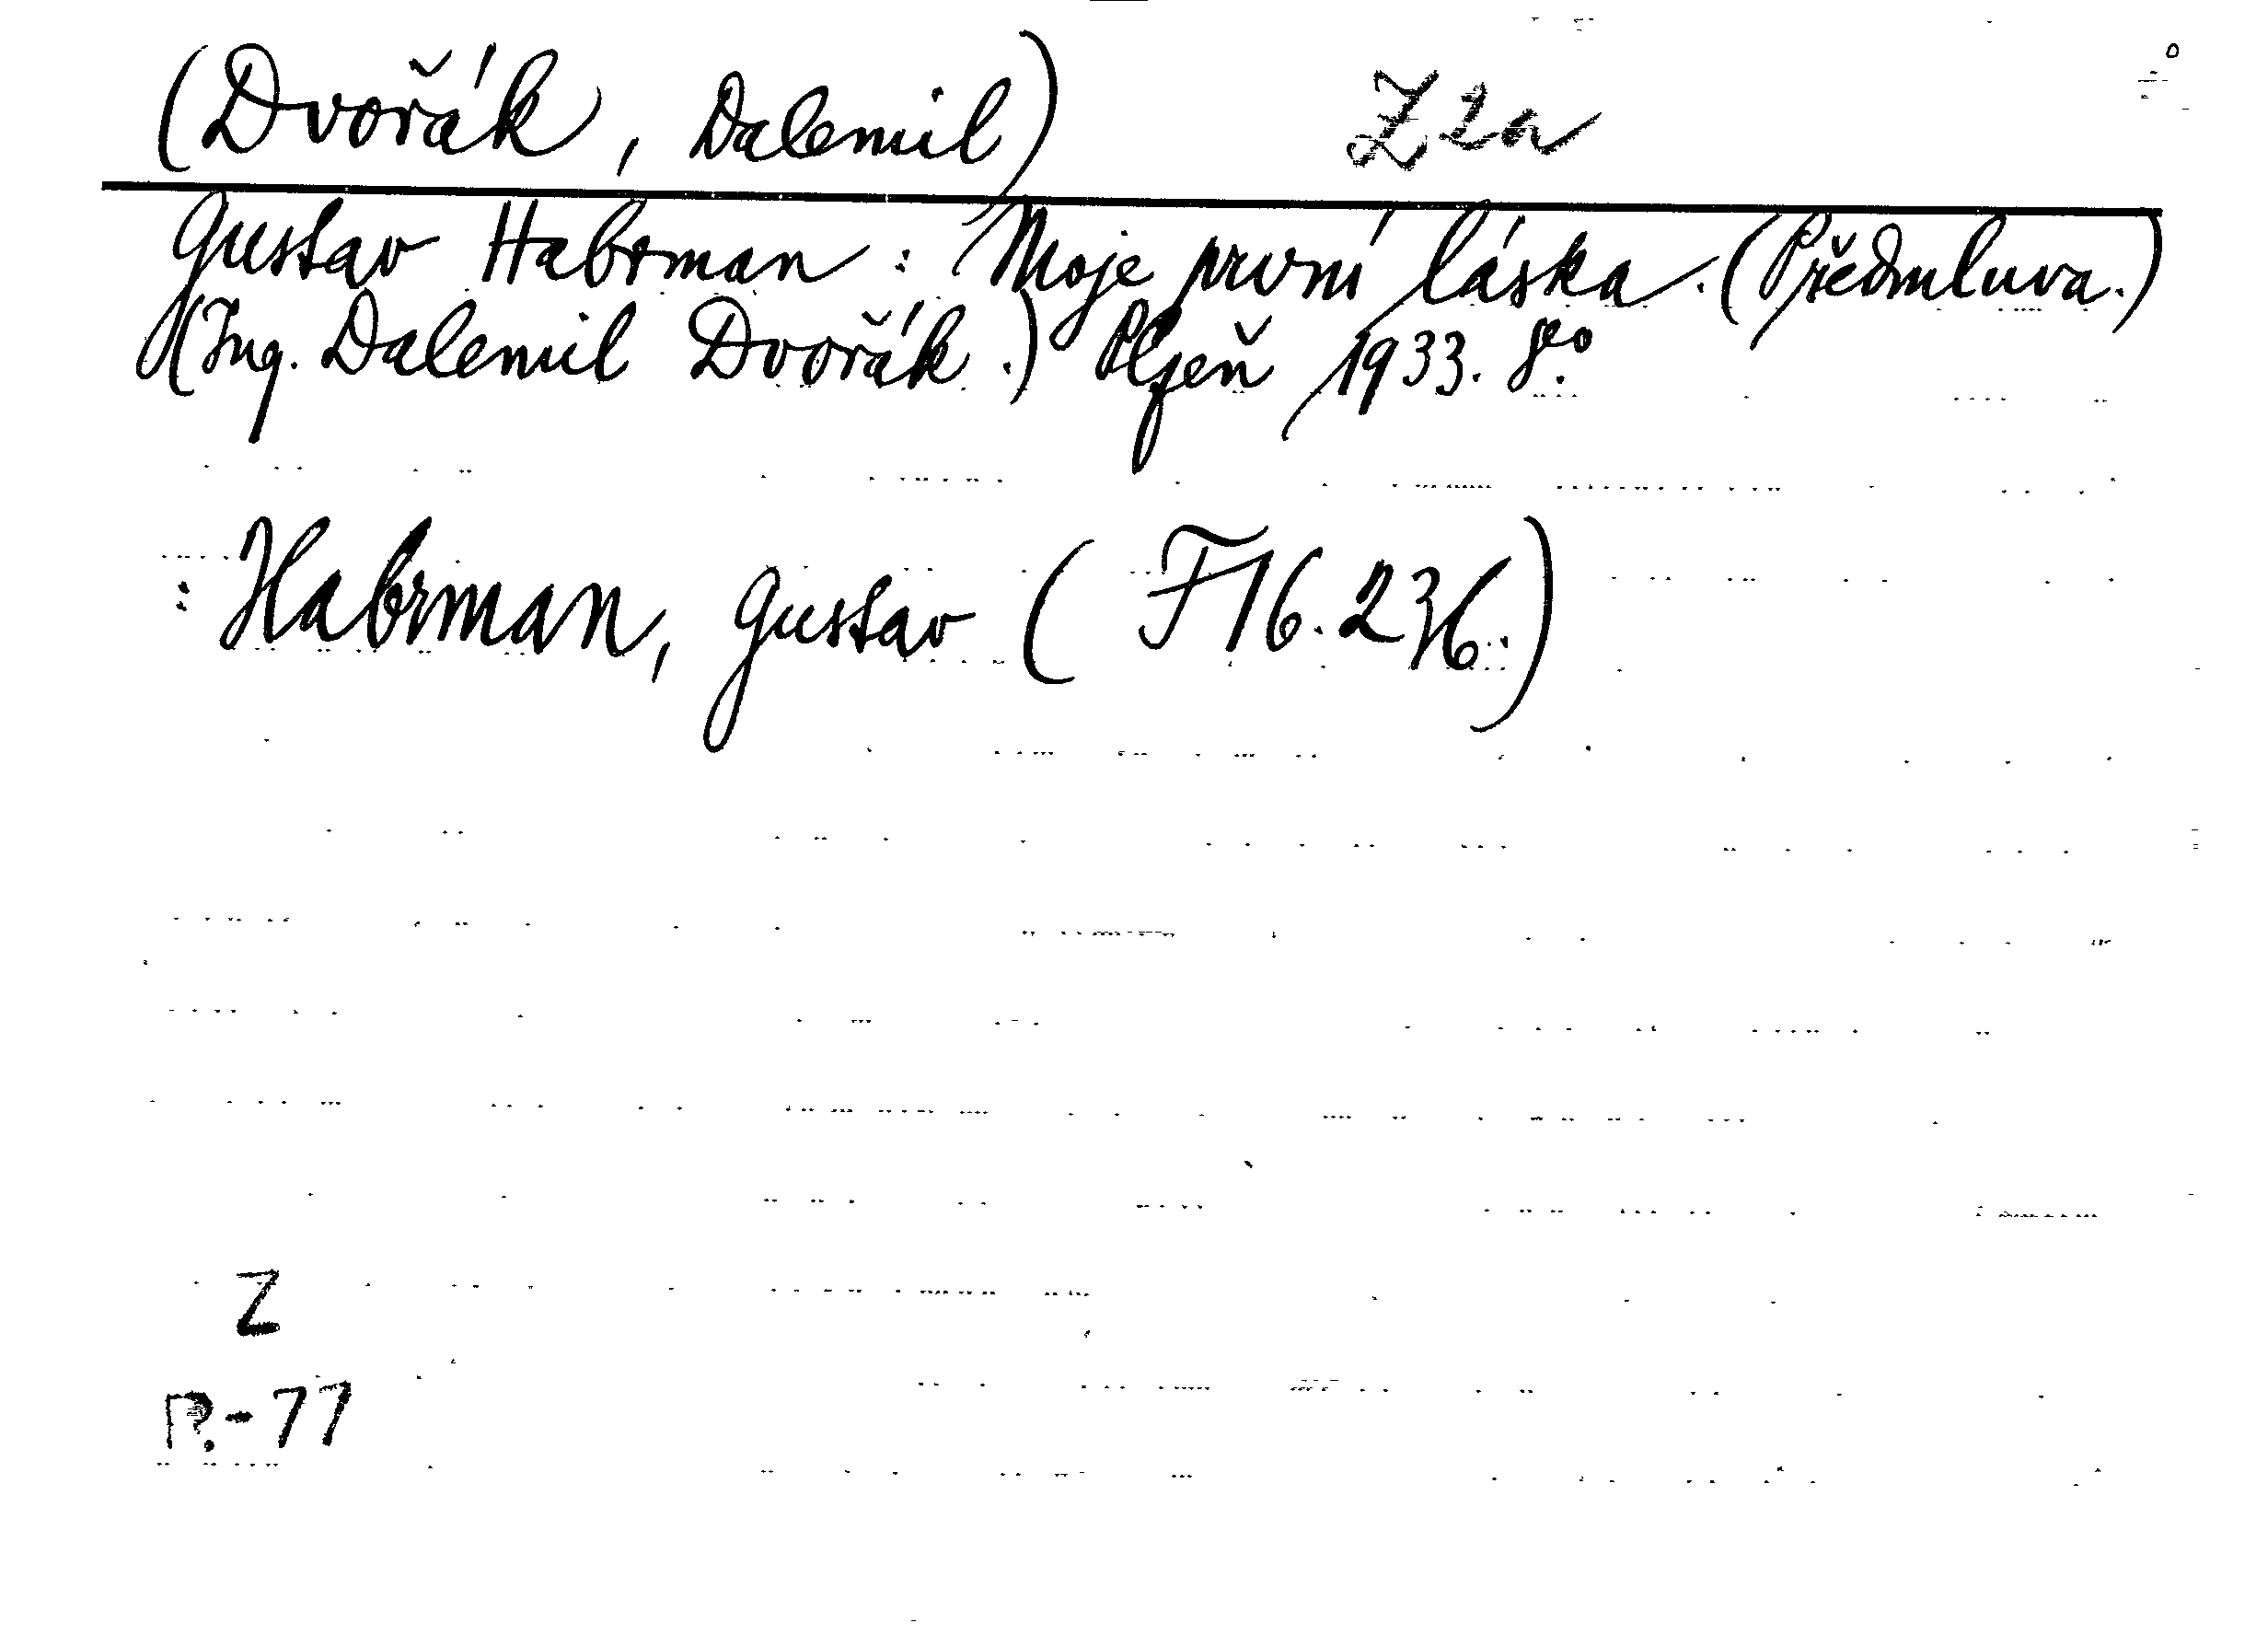 (Dvořák, Dalemil) Z2a
Gustav Habrman: Moje první láska. (Předmluva.)
(Ing. Dalemil Dvořák.) Plzeň 1933. 8º.
: Habrman, Gustav (F 16.236.)
Z
P.-77